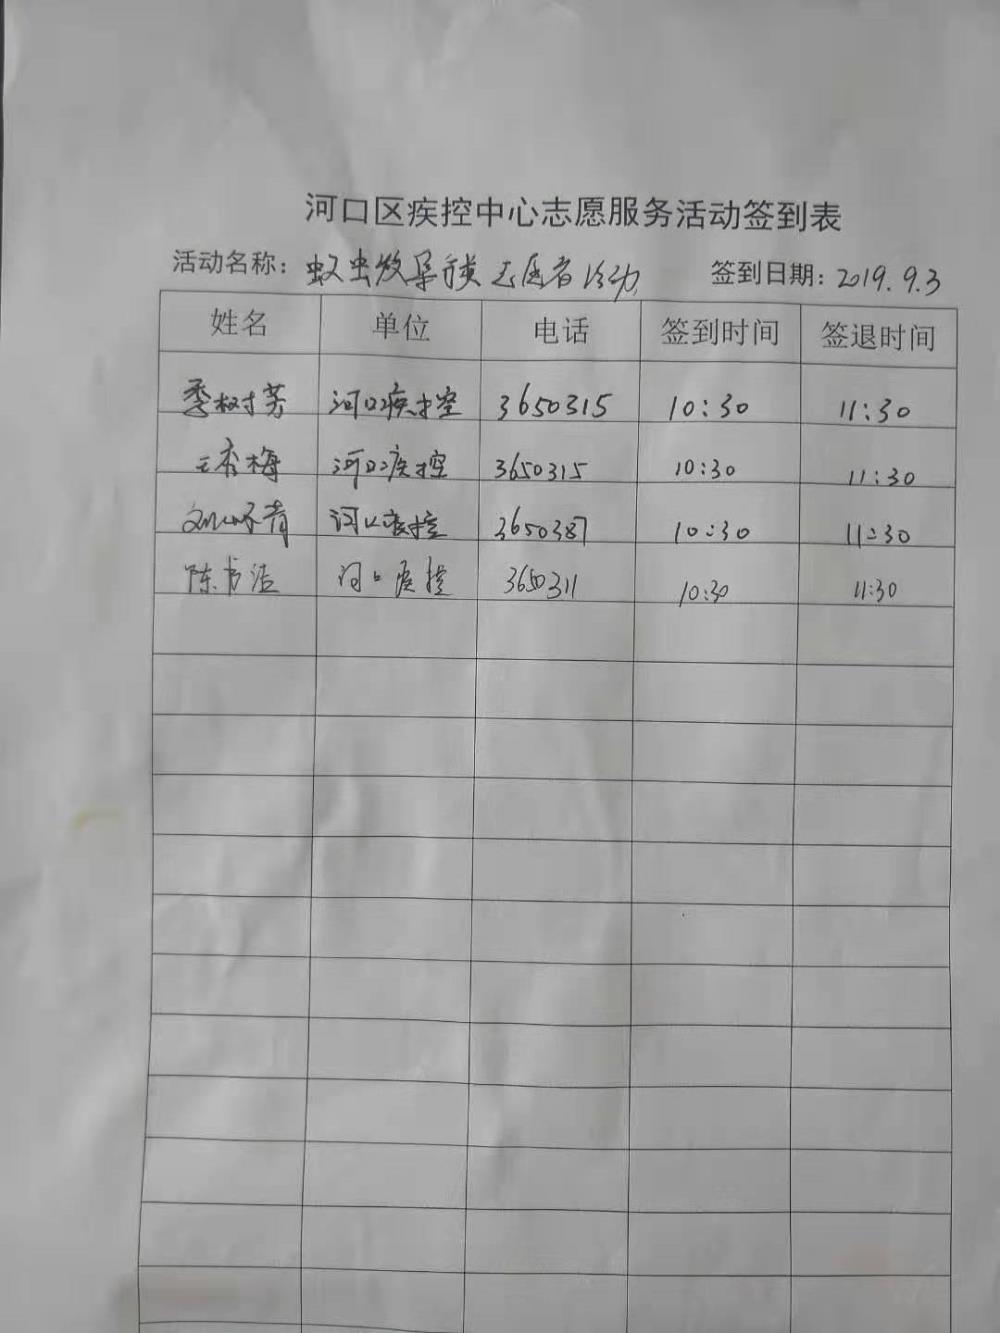 河口区疾控中心志愿服务活动签到表
活动名称: 蚊虫 志愿者活动 签到日期: 2019.9.3
姓名 单位 电话 签到时间 签退时间
季树芳 河口疾控 3650315 10:30 11:30
王秀梅 河口疾控 3650315 10:30 11:30
刘 青 河口疾控 3650387 10:30 11:30
陈书洁 河口疾控 3650311 10:30 11:30